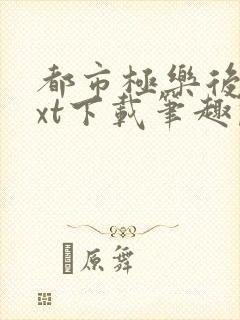 都市極樂後
xt下載筆趣
原舞